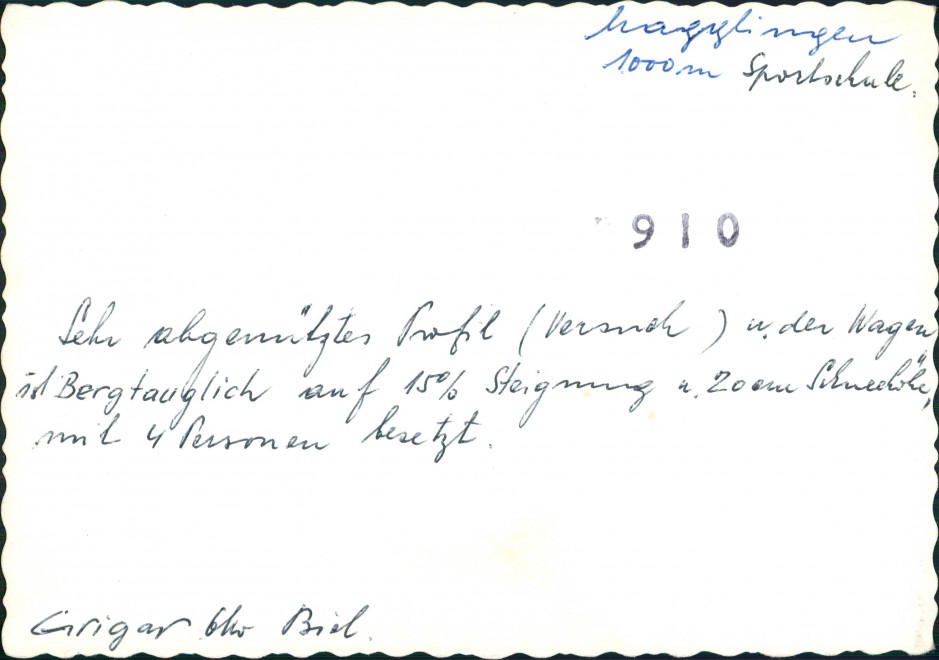 Magglingen
1000 m Sportschule.
910
Sehr abgenütztes Profil (Versuch) u. der Wagen
ist Bergtauglich auf 15% Steignung u. 20cm Schneehöhe,
mit 4 Personen besetzt.
Biel.